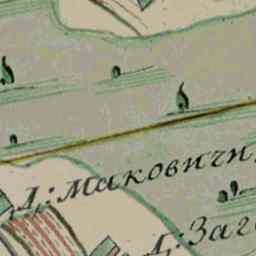 Д: Маковичи,
Д: Заг